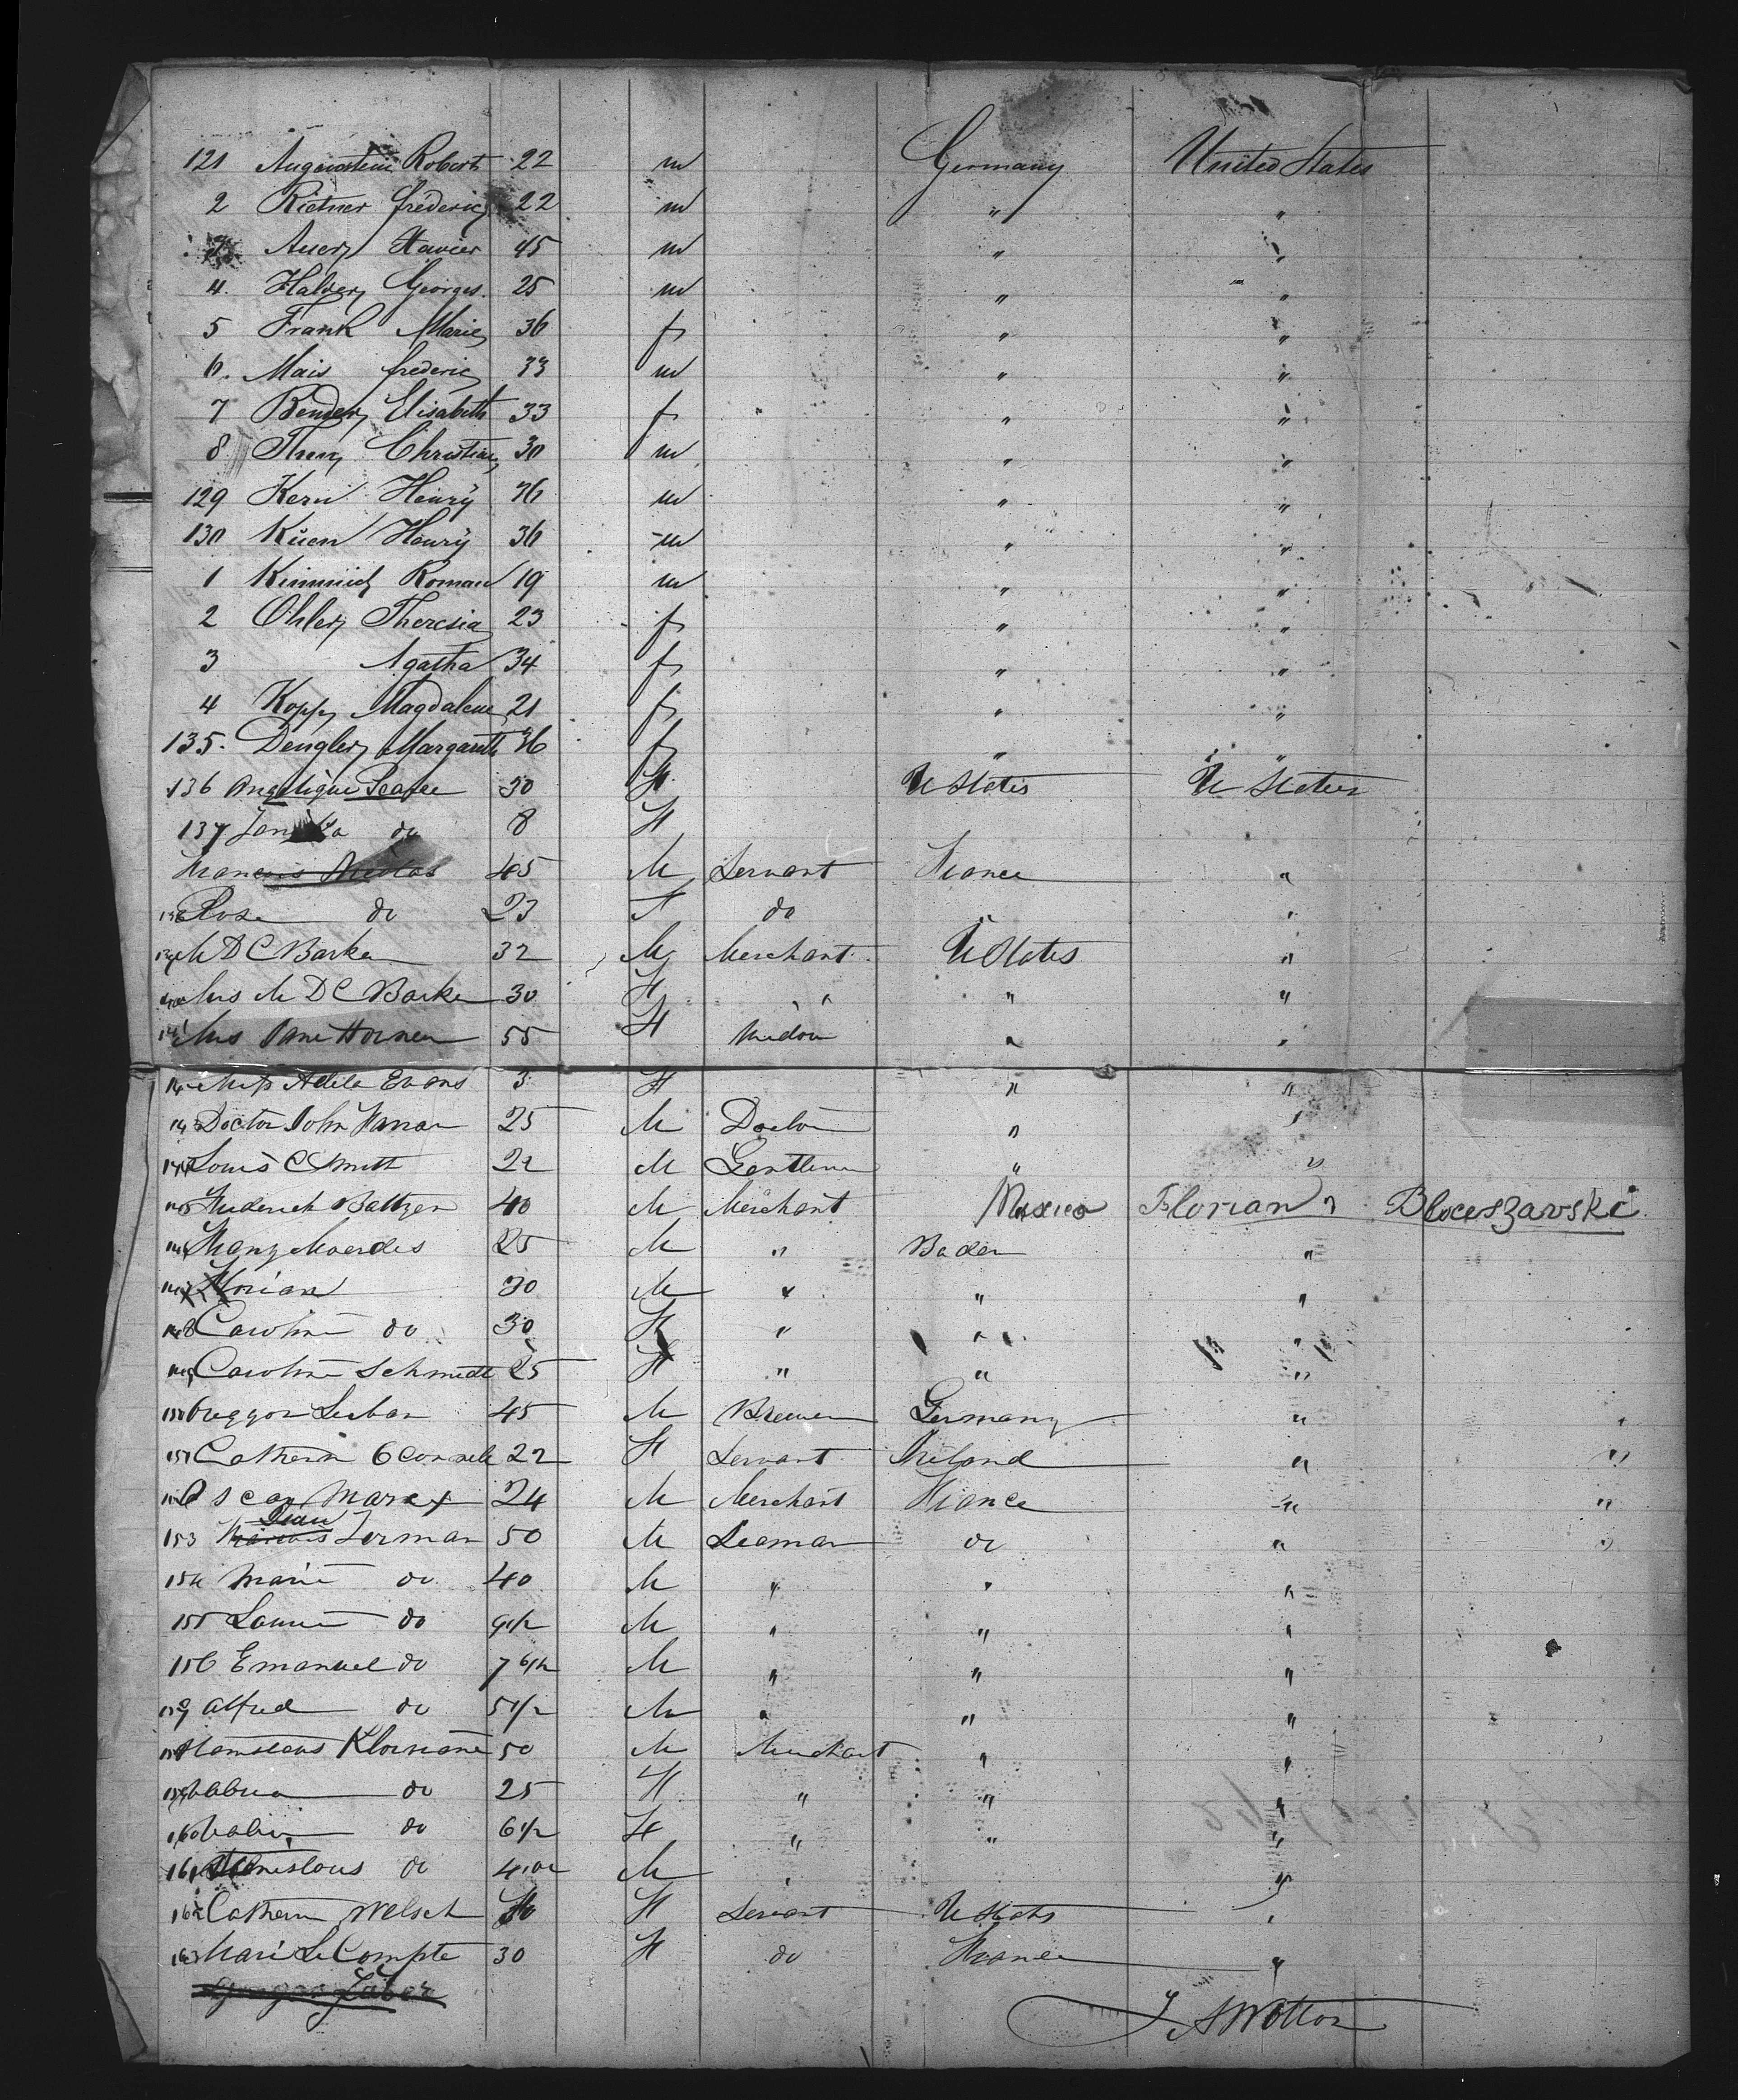 121 Robert 22 m Germany United States
2 Rietner frederic 22 m " "
Auer Xavier 45 m " "
4. Halder Georges. 25 m " "
5 Frank Marie 36 f " "
6. Mais frederic 33 m " "
7 Bender Elisabeth 33 f " "
8 Christian 30 m " "
129 Kern Henry 36 m " "
130 Küen Henry 36 m " "
1 Kimmich Roman 19 m " "
2 Ohler Theresia 23 f " "
3 Agatha 34 f " "
4 Kopp Magdalene 21 f " "
135. Dengler 36 f " "
136 Angelique 30 F U States U States
137 do 8 F
45 M Servant France "
Rosa do 23 F do "
M D C Barker 32 M Merchant U States "
140 Mrs M D C Barker 30 F " "
141 Mrs Jane Horner 55 F Widow " "
Miss Adela Evans 3 F " "
143 Doctor John 25 M Doctor " "
144 Louis C Smith 22 M Gentleman " "
145 Frederick Baltzer 40 M Merchant Mexico Florian " Bloceszavski
146 25 M " Baden "
147 Florian 30 M " " "
148 Caroline do 30 F " " "
149 Caroline Schmidt 25 F " " "
150 45 M Brewer Germany " "
151 Catherin O Connele 22 F Servant Ireland " "
152 Oscar Marex 24 M Merchant France " "
153 Jean Lerman 50 M Seaman do " "
154 Marie do 40 M " " "
155 do 9 1/2 M " " "
156 Emanuel do 7 6/12 M " " "
157 Alfred do 5 1/2 M " " "
158 50 M Merchant " "
159 do 25 F " " "
160 do 6 1/2 F " " "
161 Stanislaus do M " " "
162 Catherin Welsch F Servant U States "
163 Marie Le Compte 30 F do France "
J A Wotton